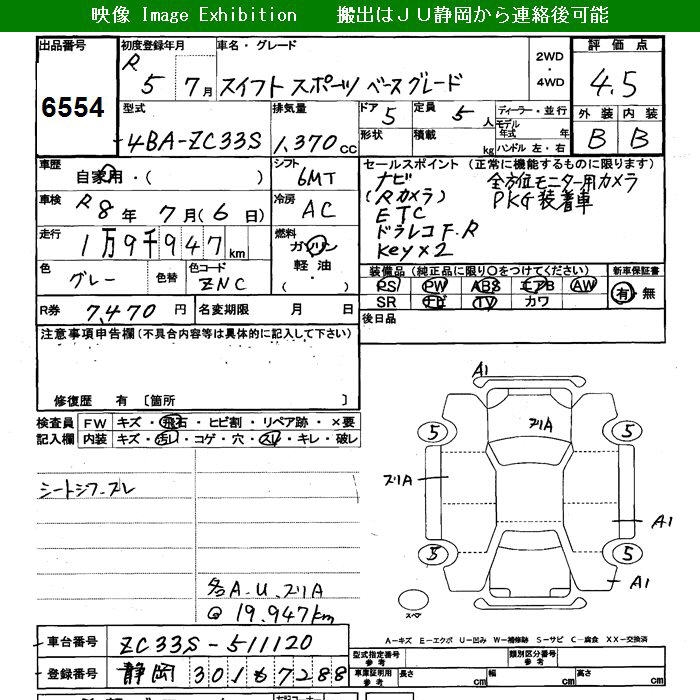 映像 Image Exhibition 搬出はJU静岡から連絡後可能
出品番号 初度登録年月 車名・グレード 2WD・4WD 評価点
6554 R 5年 7月 スイフト スポーツ ベースグレード 4.5
型式 排気量 ドア 定員 ディーラー・並行 外装 内装
4BA-ZC33S 1,370cc 5 5人 モデル年式 年 B B
形状 積載 kg ハンドル 左・右
車歴 自家用・( ) シフト 6MT
セールスポイント (正常に機能するものに限ります)
ナビ 全方位モニター用カメラ
(Rカメラ) PKG装着車
ETC
ドラレコ F.R
Key×2
車検 R8年 7月(6日) 冷房 AC
走行 1万9千947km 燃料 ガソリン 軽油・( )
色 グレー 色替 色コード ZNC
装備品 (純正品に限り○をつけてください) 新車保証書
PS PW ABS エアB AW 有・無
SR ナビ TV カワ
R券 7,470円 名変期限 月 日
後日品
注意事項申告欄(不具合内容等は具体的に記入して下さい)
修復歴 有 〔箇所 〕
検査員記入欄 FW キズ・飛石・ヒビ割・リペア跡・×要
内装 キズ・汚レ・コゲ・穴・スレ・キレ・破レ
シートシワ-スレ
各A.U.スリA
@ 19.947km
A1
スリA
5 5
スリA
A1
5 5
A1
スペ
A-キズ E-エクボ U-凹み W-補修跡 S-サビ C-腐食 XX-交換済
車台番号 ZC33S-511120
登録番号 静岡 301 も 7288
型式指定番号 参考 類別区分番号 参考
車庫証明用 参考 長さ cm 幅 cm 高さ cm